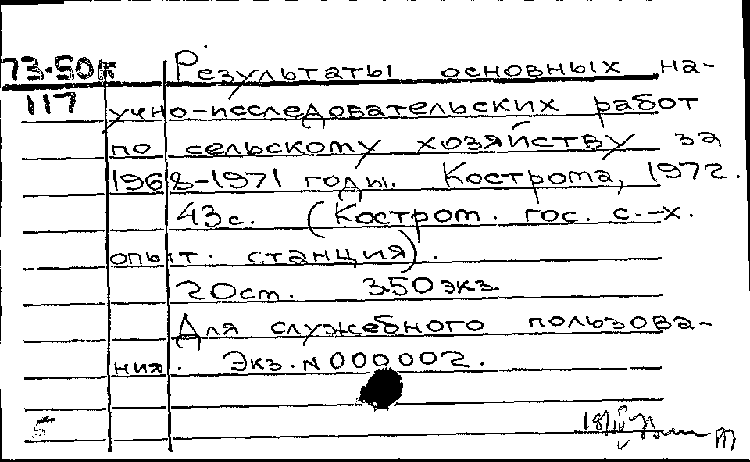 73-50к Результаты основных на-
117 учно-исследовательских работ
по сельскому хозяйству за
1968-1971 годы. Кострома, 1972.
43с. (Костром. гос. с.-х.
опыт. станция).
20см. 350экз.
Для служебного пользова-
ния. Экз. N 000002.
5